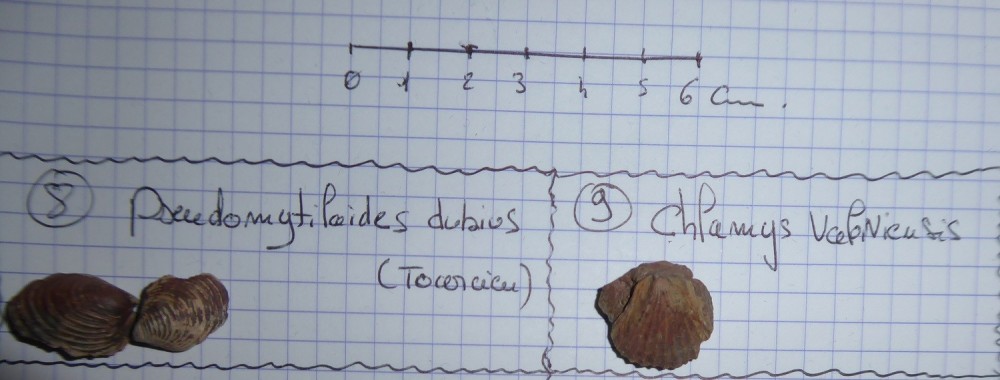 0 1 2 3 4 5 6 Cm.
⑧ Pseudomytiloides dubius
(Toarcien)
⑨ Chlamys Valoniensis